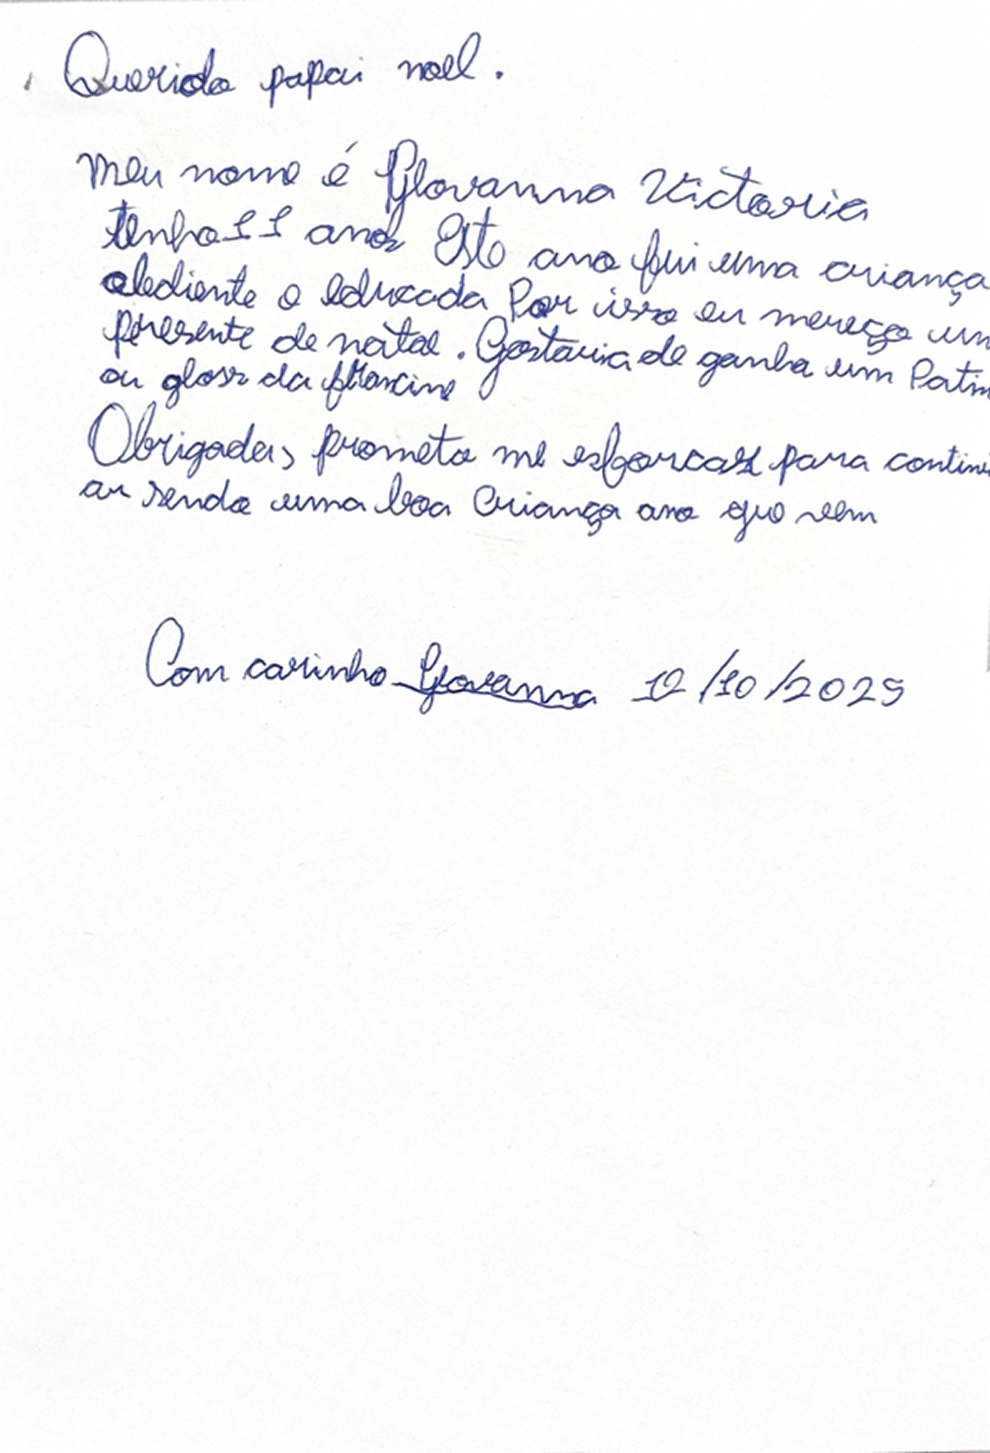 Querido papai noel.
Meu nome é Giovanna Victoria
tenho 11 anos Este ano fui uma criança
obediente e educada Por isso eu mereço um
presente de natal. Gostaria de ganha um Patin
ou gloss da francine
Obrigada, prometo me esforcar para continu
ar sendo uma boa Criança ano que vem
Com carinho Giovanna 12/10/2025